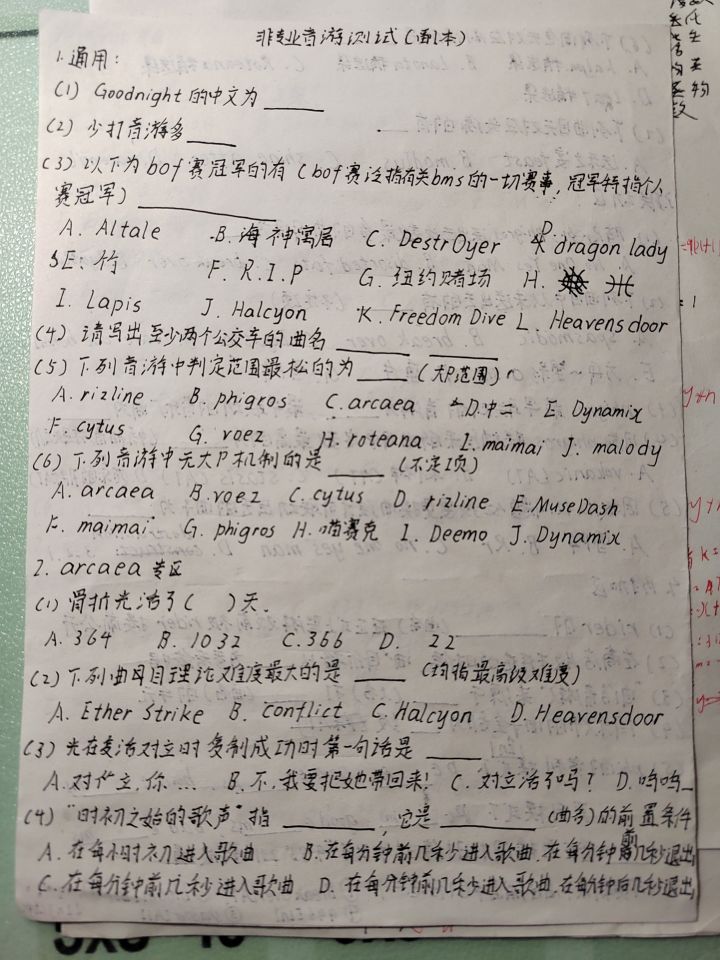 非专业音游测试(副本)
1.通用:
(1) Goodnight的中文为____
(2) 少打音游多____
(3) 以下为bof赛冠军的有(bof赛泛指有关bms的一切赛事,冠军特指个人
赛冠军)________
A. Altale B. 海神寓居 C. DestrOyer D. dragon lady
E. 竹 F. R.I.P G. 纽约赌场 H.
I. Lapis J. Halcyon K. Freedom Dive L. Heavensdoor
(4) 请写出至少两个公交车的曲名____ ____
(5) 下列音游中判定范围最松的为____(大P范围)
A. rizline B. phigros C. arcaea D. 中二 E. Dynamix
F. cytus G. voez H. roteana I. maimai J. malody
(6) 下列音游中无大P机制的是____(不定项)
A. arcaea B. voez C. cytus D. rizline E. MuseDash
F. maimai G. phigros H. 喵赛克 I. Deemo J. Dynamix
2. arcaea 专区
(1) 骨折光活了( )天.
A. 364 B. 1032 C. 366 D. 22
(2) 下列曲目目理论难度最大的是____(均指最高级难度)
A. Ether Strike B. conflict C. Halcyon D. Heavensdoor
(3) 光在复活对立时复制成功时第一句话是____
A. 对立,你... B. 不,我要把她带回来! C. 对立活了吗? D. 呜呜_
(4) "时初之始的歌声"指____,它是____(曲名)的前置条件
A. 在每小时初进入歌曲 B. 在每分钟前几秒进入歌曲,在每分钟前几秒退出
C. 在每分钟前几秒进入歌曲 D. 在每分钟前几秒进入歌曲,在每分钟后几秒退出